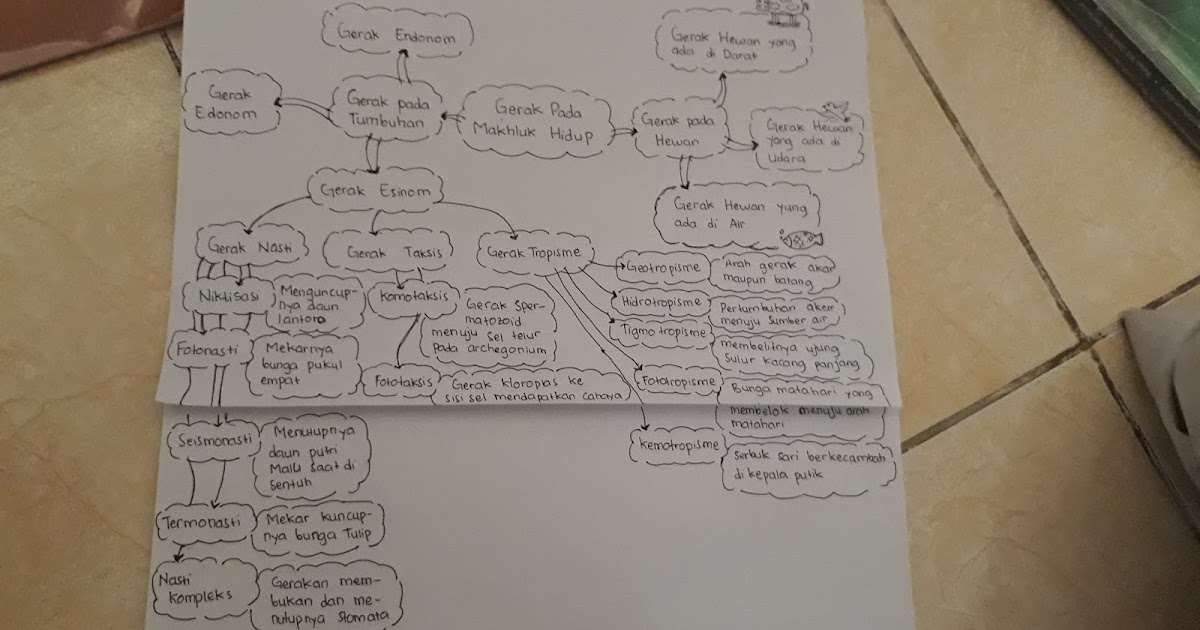 Gerak Endonom
Gerak Hewan yang
ada di Darat
Gerak
Edonom
Gerak pada
Tumbuhan
Gerak Pada
Makhluk Hidup
Gerak pada
Hewan
Gerak Hewan
yang ada di
Udara
Gerak Esinom
Gerak Hewan yang
ada di Air
Gerak Nasti
Gerak Taksis
Gerak Tropisme
Niktisasi
Menguncup-
nya daun
lantora
Fotonasti
Mekarnya
bunga pukul
empat
Seismonasti
Menutupnya
daun putri
Malu saat di
sentuh
Termonasti
Mekar kuncup-
nya bunga Tulip
Nasti
Kompleks
Gerakan mem-
bukan dan me-
nutupnya Stomata
Komotaksis
Gerak Sper-
matozoid
menuju sel telur
pada archegonium
Fototaksis
Gerak kloroplas ke
sisi sel mendapatkan cahaya
Geotropisme
Arah gerak akar
maupun batang
Hidrotropisme
Pertumbuhan akar
menuju Sumber air
Tigmotropisme
membelitnya ujung
Sulur kacang panjang
Fototropisme
Bunga matahari yang
membelok menuju arah
matahari
Kemotropisme
Serbuk Sari berkecambah
di kepala putik